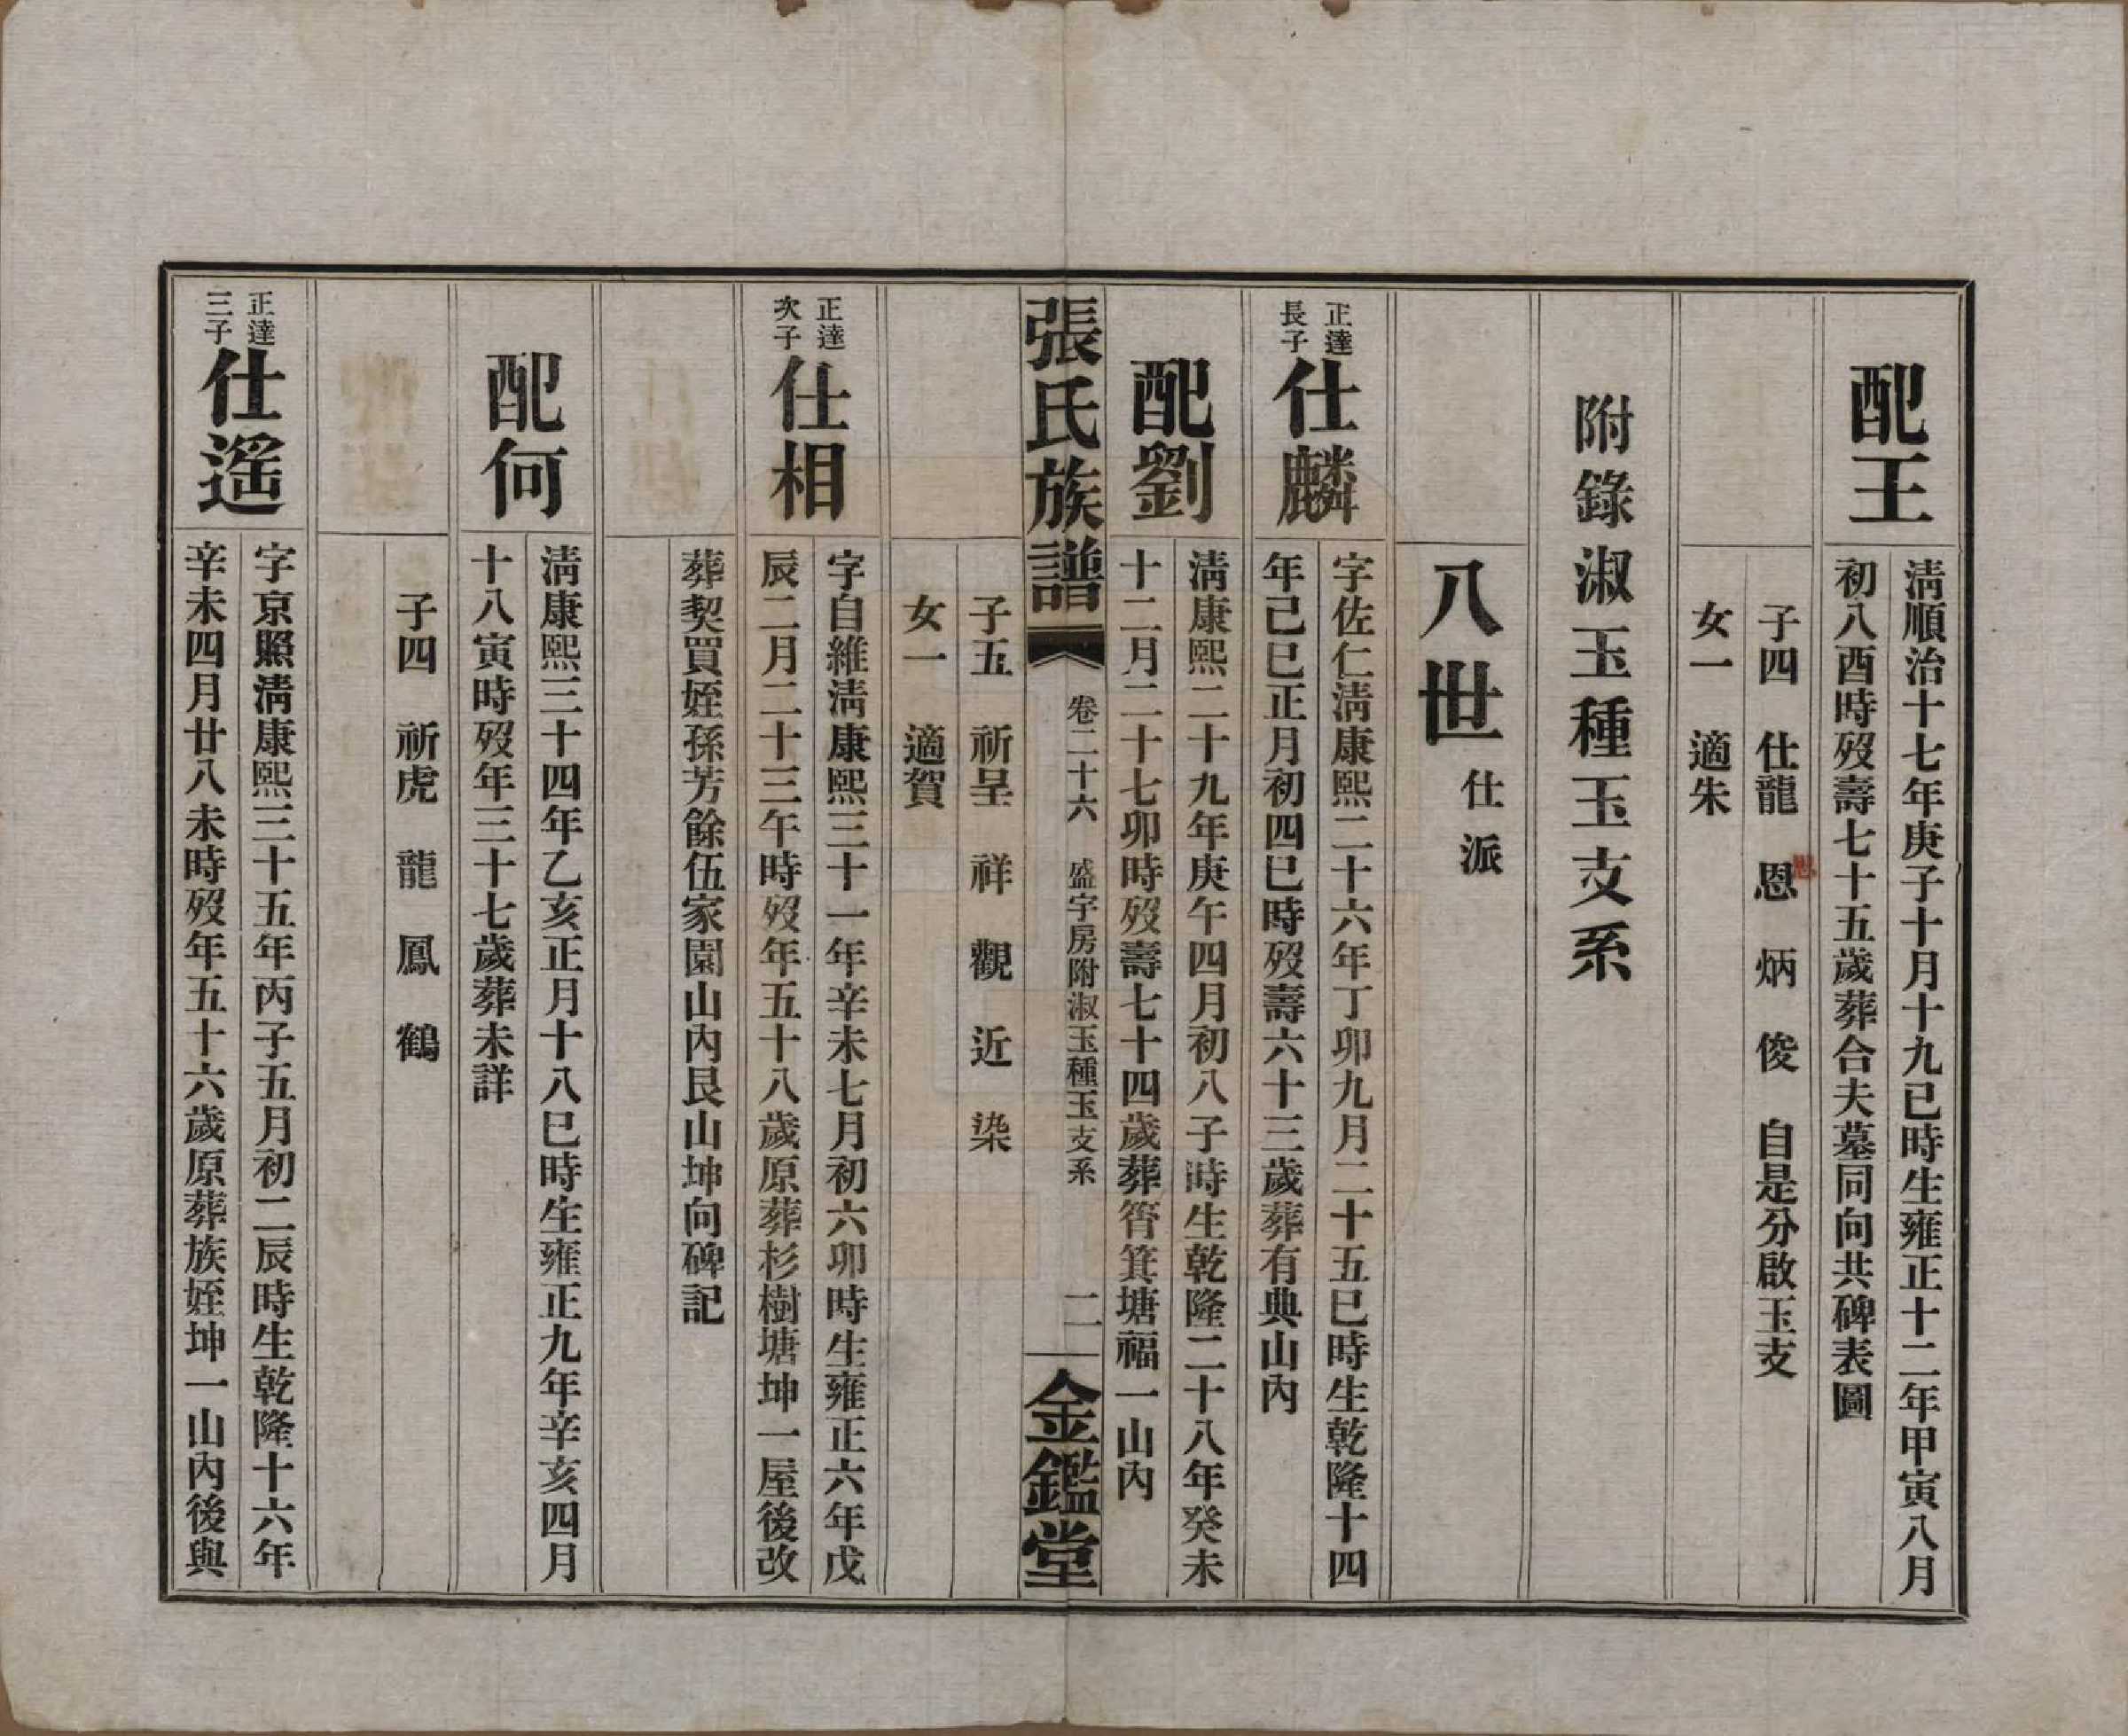 配王
淸順治十七年庚子十月十九巳時生雍正十二年甲寅八月
初八酉時歿壽七十五歲葬合夫墓同向共碑表圖
子四 仕龍 恩 炳 俊 自是分啟玉支
女一 適朱
附錄淑玉種玉支系
八世 仕派
正達長子
仕麟
字佐仁淸康熙二十六年丁卯九月二十五巳時生乾隆十四
年己巳正月初四巳時歿壽六十三歲葬有典山內
配劉
淸康熙二十九年庚午四月初八子時生乾隆二十八年癸未
十二月二十七卯時歿壽七十四歲葬筲箕塘福一山內
張氏族譜
卷二十六 盛宇房附淑玉種玉支系
二
金鑑堂
子五 祈呈 祥 觀 近 染
女一 適賀
正達次子
仕相
字自維淸康熙三十一年辛未七月初六卯時生雍正六年戊
辰二月二十三午時歿年五十八歲原葬杉樹塘坤一屋後改
葬契買姪孫芳餘伍家園山內艮山坤向碑記
配何
淸康熙三十四年乙亥正月十八巳時生雍正九年辛亥四月
十八寅時歿年三十七歲葬未詳
子四 祈虎 龍 鳳 鶴
正達三子
仕遙
字京照淸康熙三十五年丙子五月初二辰時生乾隆十六年
辛未四月廿八未時歿年五十六歲原葬族姪坤一山內後與